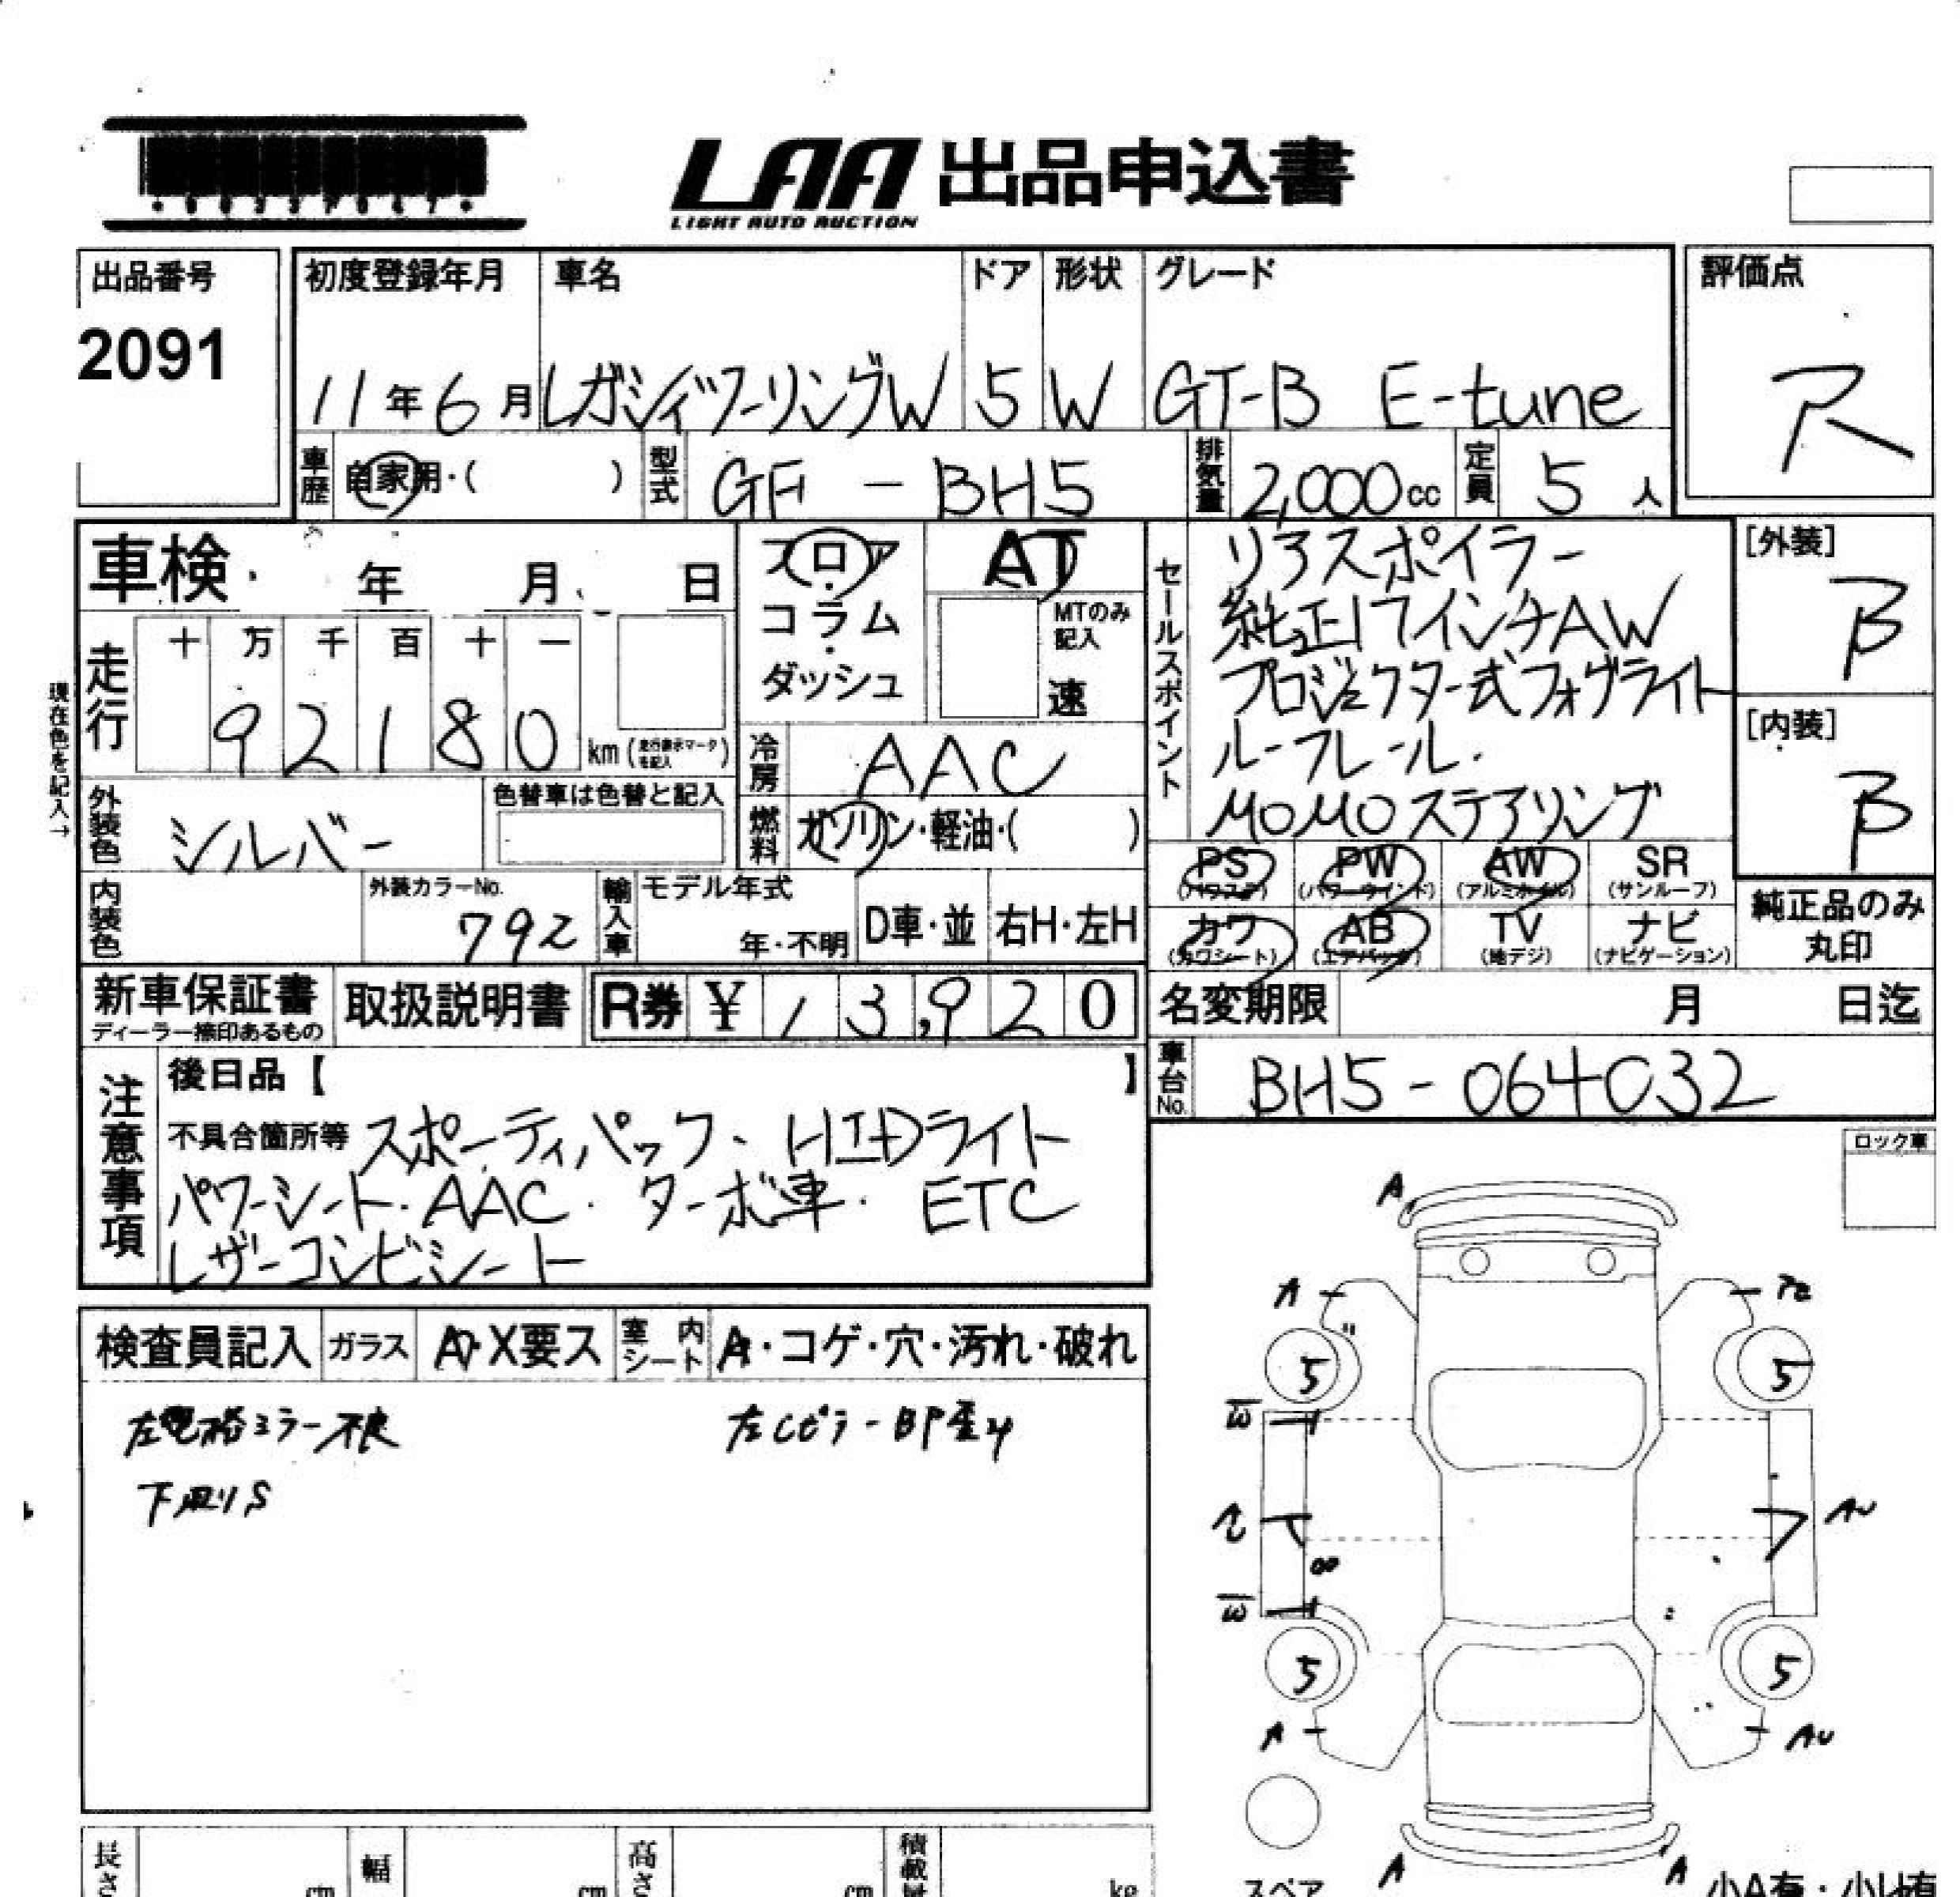 LAA 出品申込書
LIGHT AUTO AUCTION
出品番号
2091
初度登録年月 車名 ドア 形状 グレード
11年6月 レガシィツーリングW 5 W GT-B E-tune
評価点
R
車歴 自家用・( ) 型式 GF-BH5 排気量 2,000cc 定員 5人
車検 年 月 日
フロア
コラム
ダッシュ
AT
MTのみ
記入
速
セールスポイント
リアスポイラー
純正17インチAW
プロジェクター式フォグライト
ルーフレール.
MOMOステアリング
[外装]
B
[内装]
B
現在色を記入→
走行
十 万 千 百 十 一
92180 km (走行表示マークを記入)
冷房 AAC
燃料 ガソリン・軽油・( )
外装色 シルバー
色替車は色替と記入
PS (パワステ) PW (パワーウインド) AW (アルミホイル) SR (サンルーフ)
カワ (カワシート) AB (エアバック) TV (地デジ) ナビ (ナビゲーション)
純正品のみ
丸印
内装色 外装カラーNo. 792
輸入車 モデル年式 年・不明 D車・並 右H・左H
新車保証書 取扱説明書 R券 ¥ 13,920
ディーラー捺印あるもの
名変期限 月 日迄
車台No. BH5-064032
注意事項
後日品【 】
不具合箇所等 スポーティパック、HIDライト
パワーシート・AAC・ターボ車・ETC
レザーコンビシート
ロック車
検査員記入 ガラス A・X要ス 室内シート A・コゲ・穴・汚れ・破れ
左電格ミラー不良 左Cピラー部歪み
下回りS
A
A
5 5
W
AU
W
5 5
A AU
A A
スペア
小A有・小U有
長さ cm 幅 cm 高さ cm 積載量 kg